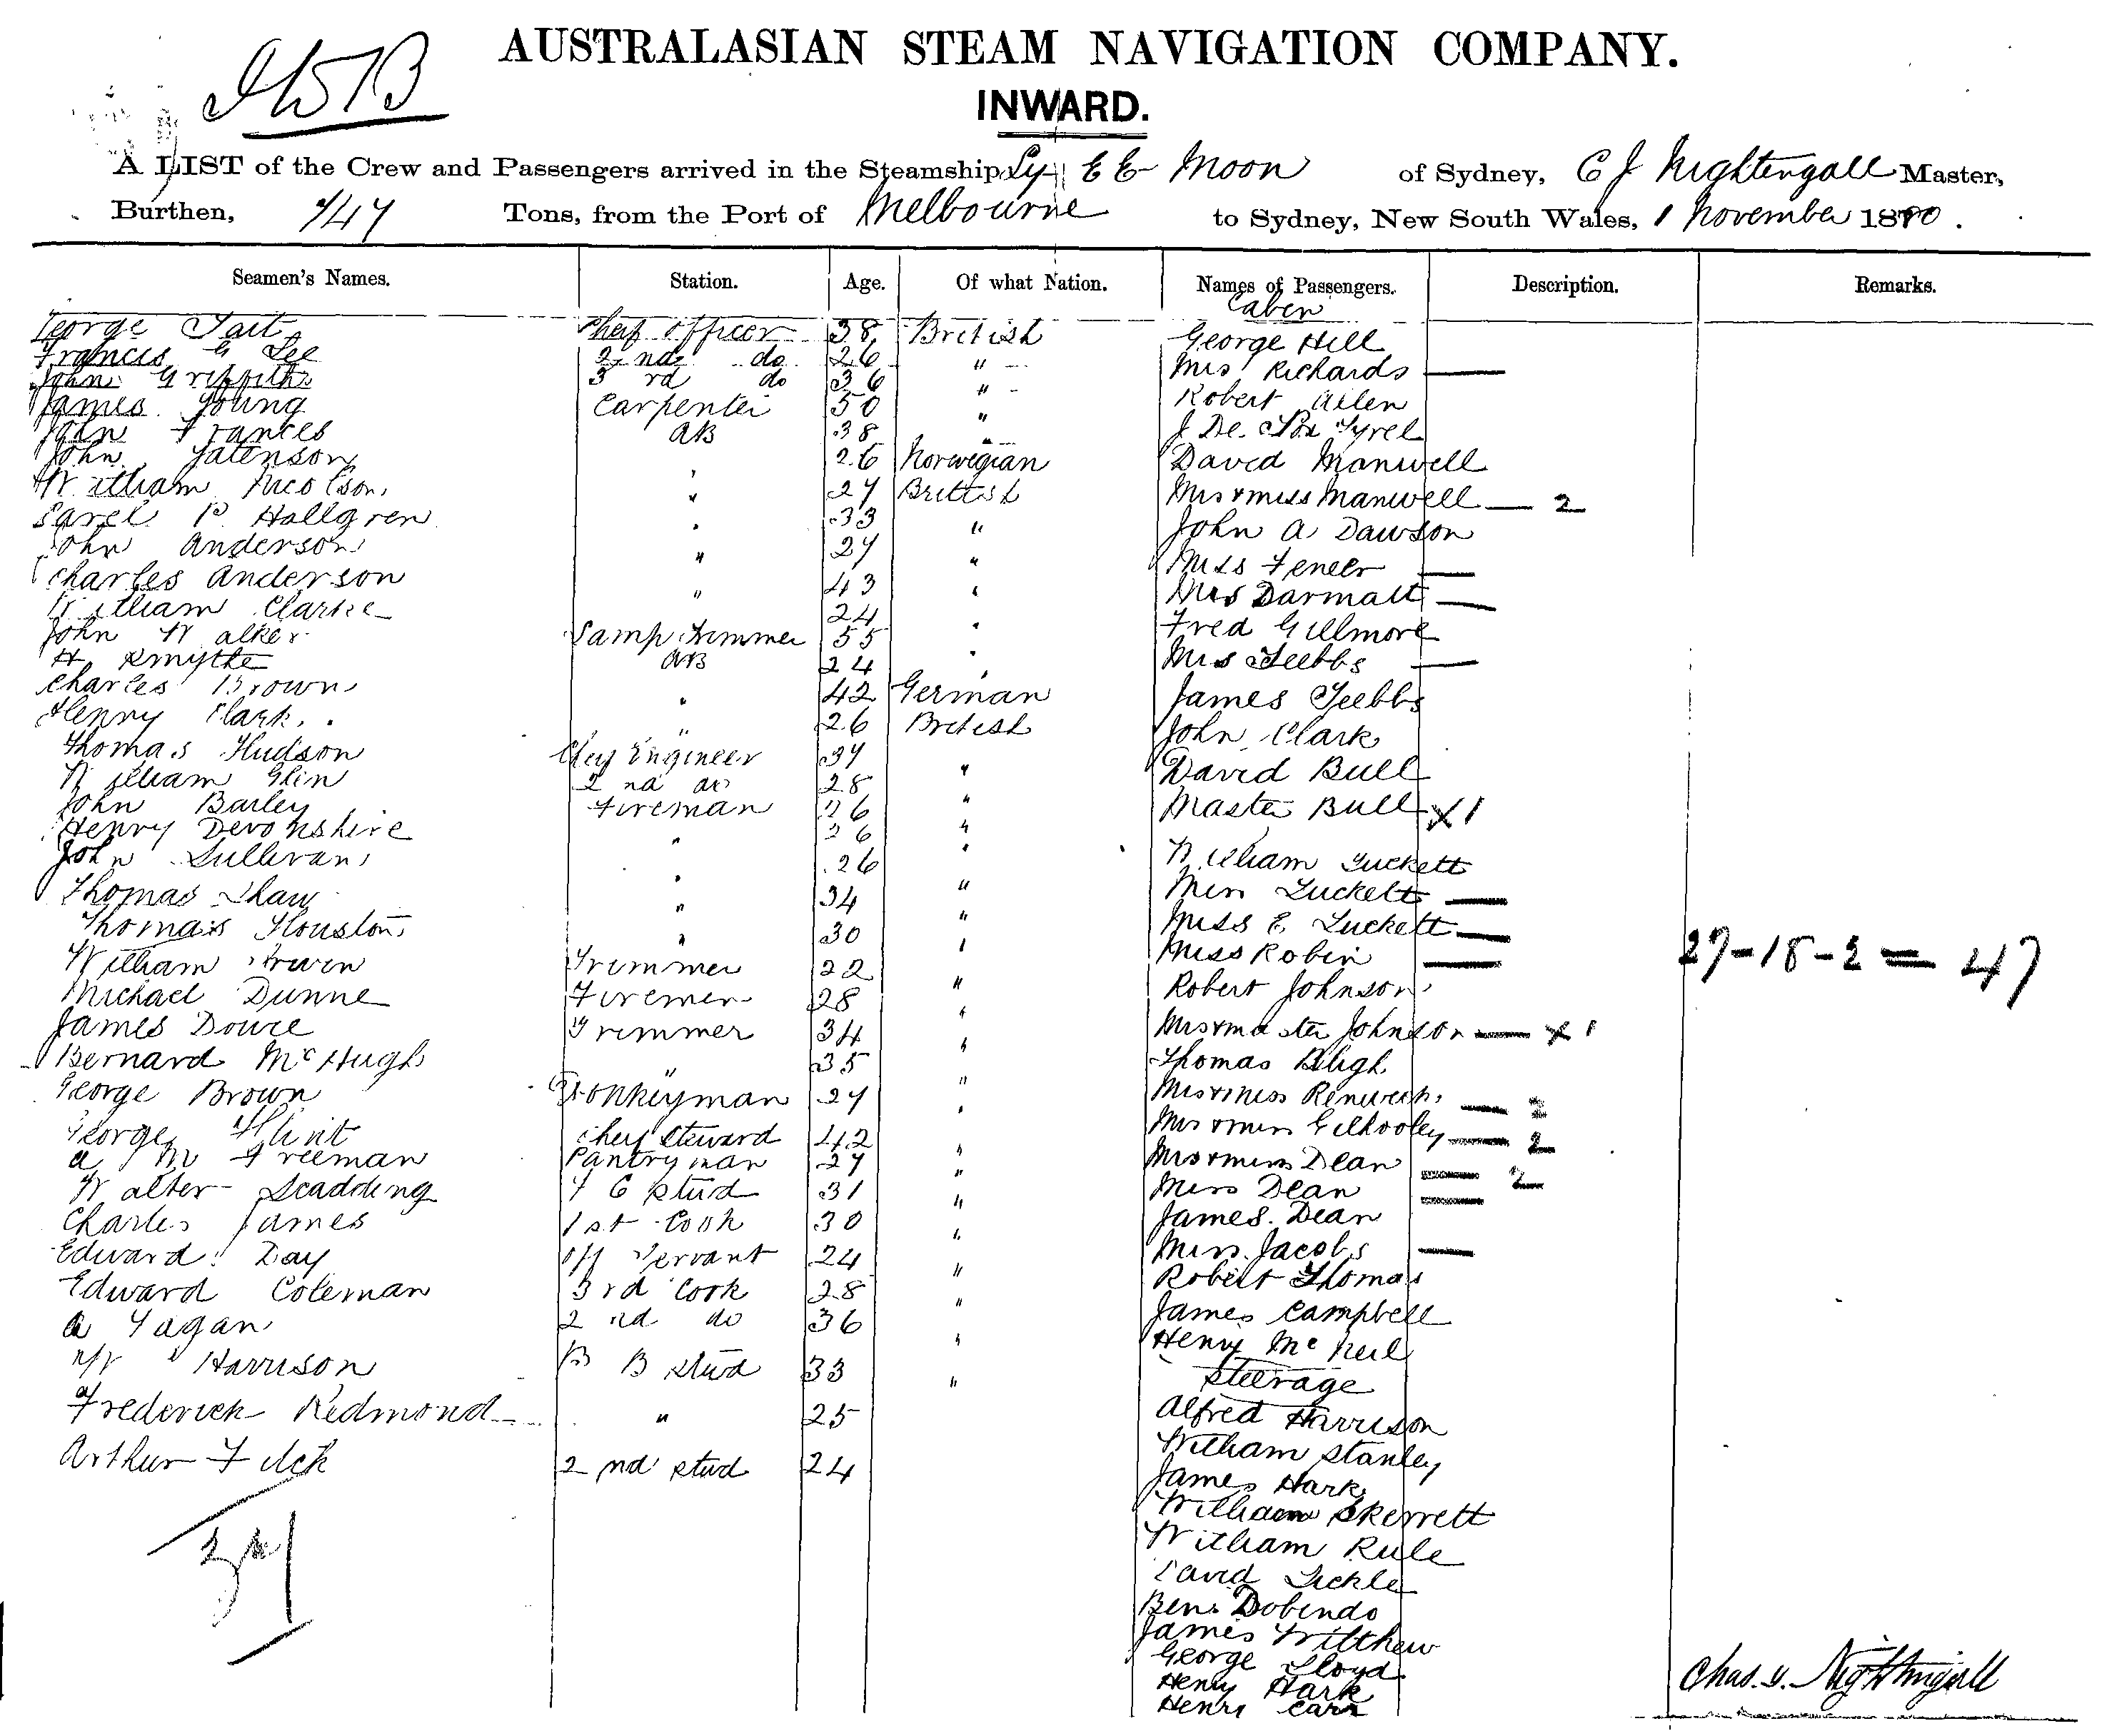 AUSTRALASIAN STEAM NAVIGATION COMPANY.
INWARD.
A LIST of the Crew and Passengers arrived in the Steamship Ly EE Moon of Sydney, C J Nightengall Master,
Burthen, 747 Tons, from the Port of Melbourne to Sydney, New South Wales, 1 November 1880.
Seamen's Names. Station. Age. Of what Nation. Names of Passengers. Description. Remarks.
Caben
George Tait Cheif officer 38 British George Hill
Francis G Lee 2 nd do 26 " Mrs Richards —
John Griffiths 3 rd do 36 " Robert Allen
James Young Carpenter 50 " J De Tyrel
John Frances AB 38 "
John 26 Norwegian David Manwell
William Nicolson " 27 British Mrs & Miss Manwell — 2
P Hallgren " 33 " John A Dawson
John Anderson " 27 " Miss —
Charles Anderson " 43 " Mrs Darmatt —
William Clarke 24 " Fred Gillmore
John Walker Lamp Trimmer 55 " Mrs Teebbs —
H Smythe AB 24 " James Teebbs
Charles Brown " 42 German
Henry Clark " 26 British John Clark
Thomas Hudson Cheif Engineer 37 " David Bull
William Glin 2 nd do 28 " Master Bull X 1
John Barley Fireman 26 "
Henry Devonshire " 36 "
John Sullivan " 26 " William Luckett
Thomas Shaw " 34 " Miss Luckett —
Thomas Houston " 30 " Miss E Luckett —
William Irwin Trimmer 22 " Miss Robin — 27-18-2 = 47
Michael Dunne Firemen 28 " Robert Johnson
James Dowie Trimmer 34 " Mrs & Master Johnson — X 1
Bernard McHugh " 35 " Thomas Bligh
George Brown Donkeyman 27 " Mrs & Miss Renwick — 2
George Flint Cheif Steward 42 " Mrs & Miss Gilhooley — 2
A M Freeman Pantryman 27 " Mrs & Miss Dean — 2
Walter Scadding F C Stud 31 " Miss Dean —
Charles James 1st Cook 30 " James Dean
Edward Day Off Servant 24 " Miss Jacobs —
Edward Coleman 3rd Cook 28 " Robert Thomas
A Fagan 2 nd do 36 " James Campbell
Harrison B B Stud 33 " Henry McNeil
Steerage
Frederick Redmond " 25 Alfred Harrison
Arthur Fitch 2 nd Stud 24 William Stanley
James Hark
William Skerrett
37 William Rule
David Tickle
Ben Dobindo
James Wilthew
George Lloyd
Henry Hark Chas. J. Nightingall
Henri Carr